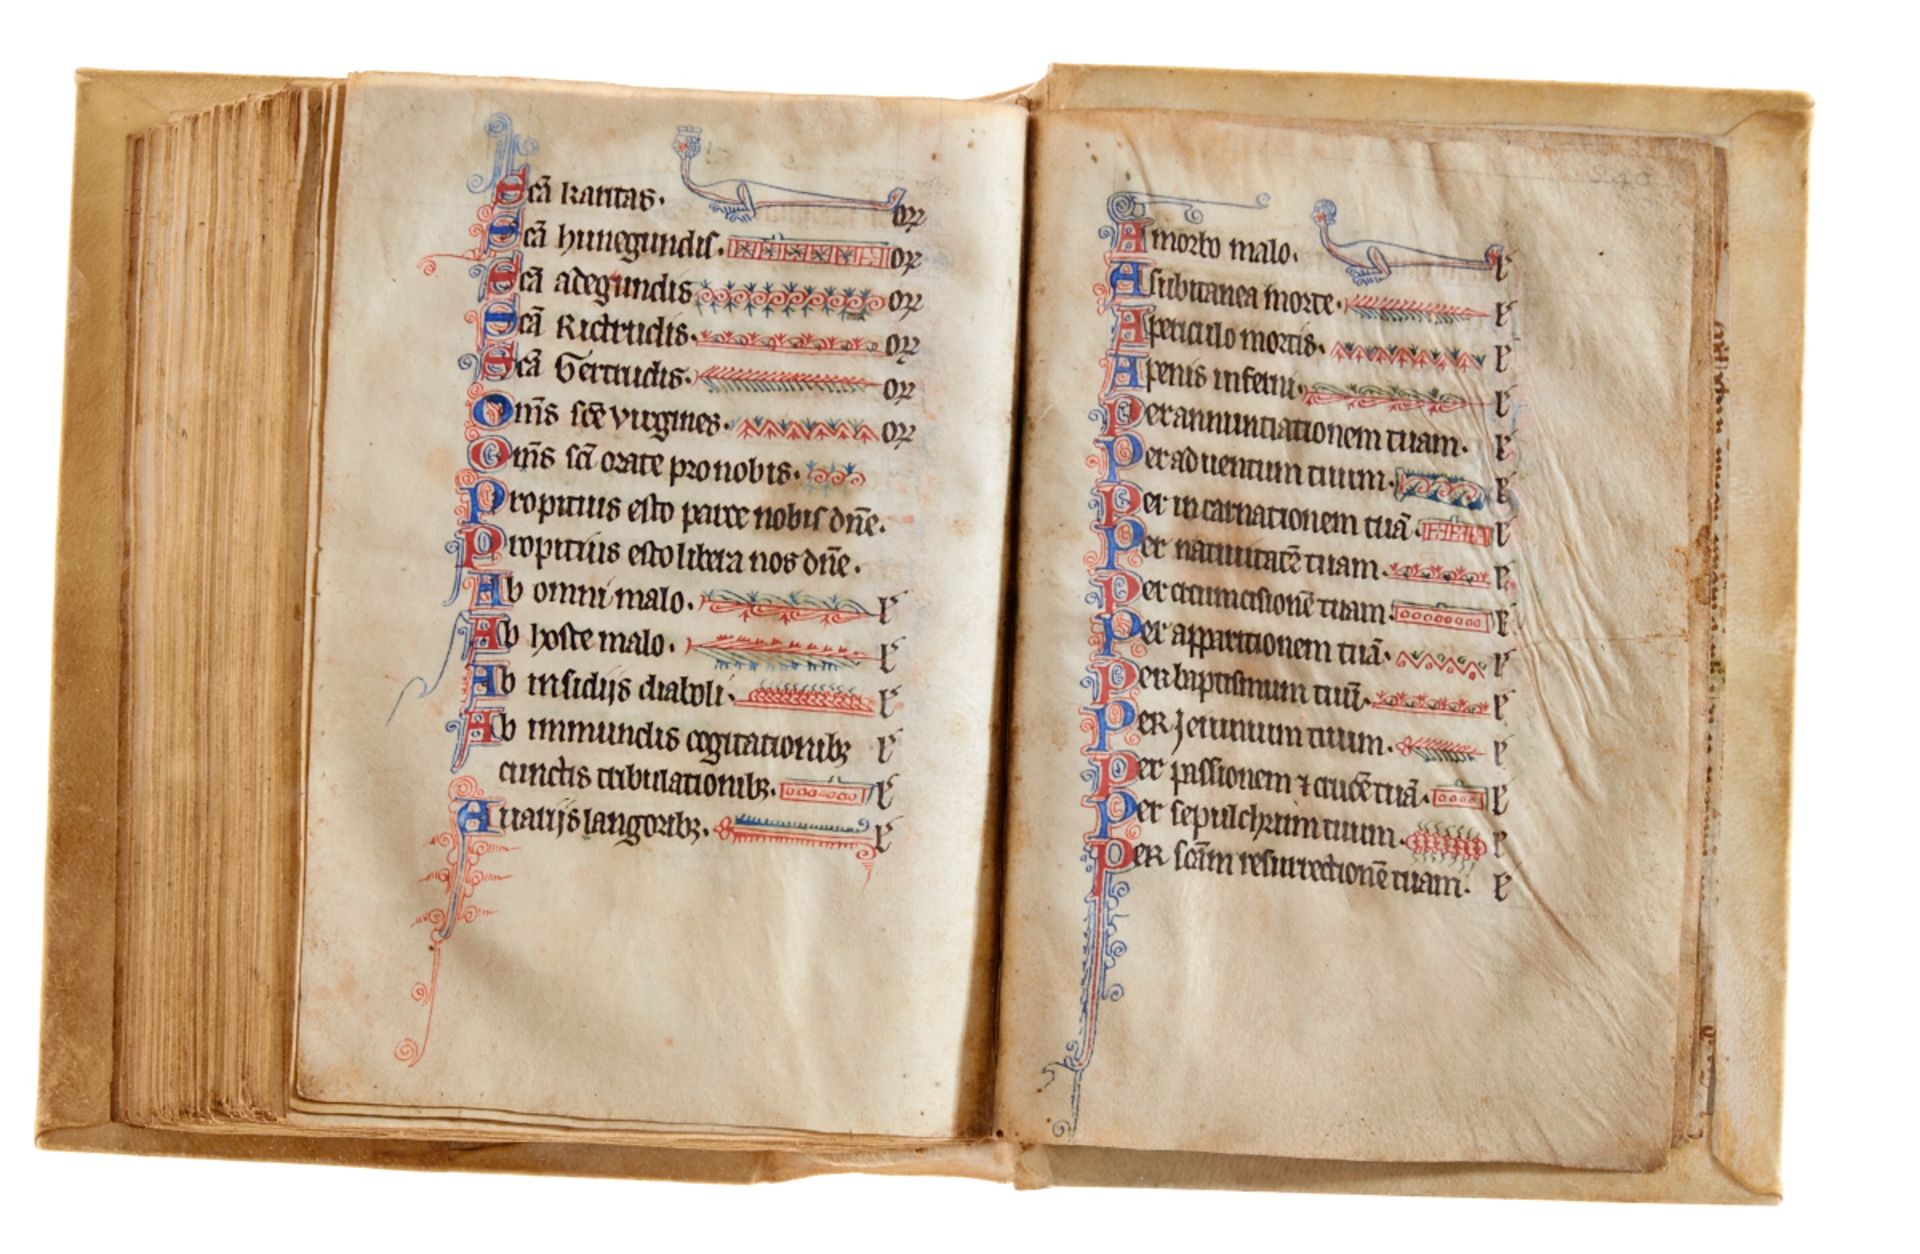 Scā karitas. or
Scā hunegundis. or
Scā adegundis or
Scā Rictrudis. or
Scā Gertrudis. or
Om̄s scē virgines. or
Om̄s scī orate pro nobis.
Propitius esto parce nobis dn̄e.
Propitius esto libera nos dn̄e.
Ab omni malo. l
Ab hoste malo. l
Ab insidijs diaboli. l
Ab immundis cogitationibꝫ l
cunctis tribulationibꝫ. l
A ualijs langoribꝫ. l
A morbo malo. l
A subitanea morte. l
A periculo mortis. l
A penis inferni. l
Per annuntiationem tuam. l
Per aduentum tuum. l
Per incarnationem tuā. l
Per natiuitatē tuam. l
Per circumcisionē tuam. l
Per apparitionem tuā. l
Per baptismum tuū. l
Per jeiunium tuum. l
Per passionem ⁊ crucē tuā. l
Per sepulchrum tuum. l
Per scām resurrectionē tuam. l